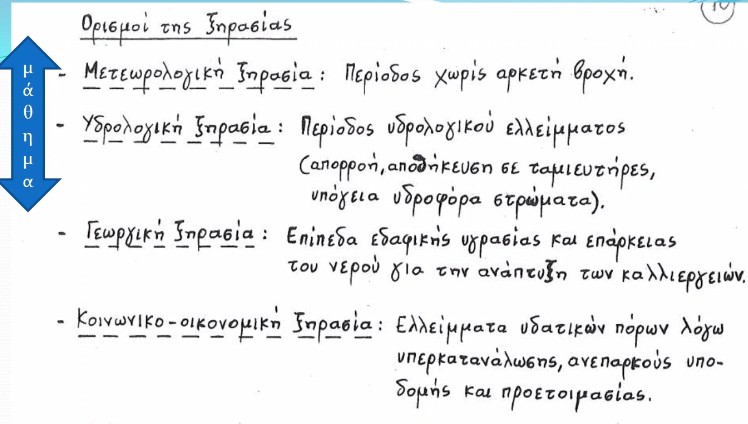 10
Ορισμοί της ξηρασίας
μάθημα
- Μετεωρολογική ξηρασία: Περίοδος χωρίς αρκετή βροχή.
- Υδρολογική ξηρασία: Περίοδος υδρολογικού ελλείμματος
(απορροή, αποθήκευση σε ταμιευτήρες,
υπόγεια υδροφόρα στρώματα).
- Γεωργική ξηρασία: Επίπεδα εδαφικής υγρασίας και επάρκειας
του νερού για την ανάπτυξη των καλλιεργειών.
- Κοινωνικο-οικονομική ξηρασία: Ελλείμματα υδατικών πόρων λόγω
υπερκατανάλωσης, ανεπαρκούς υπο-
δομής και προετοιμασίας.